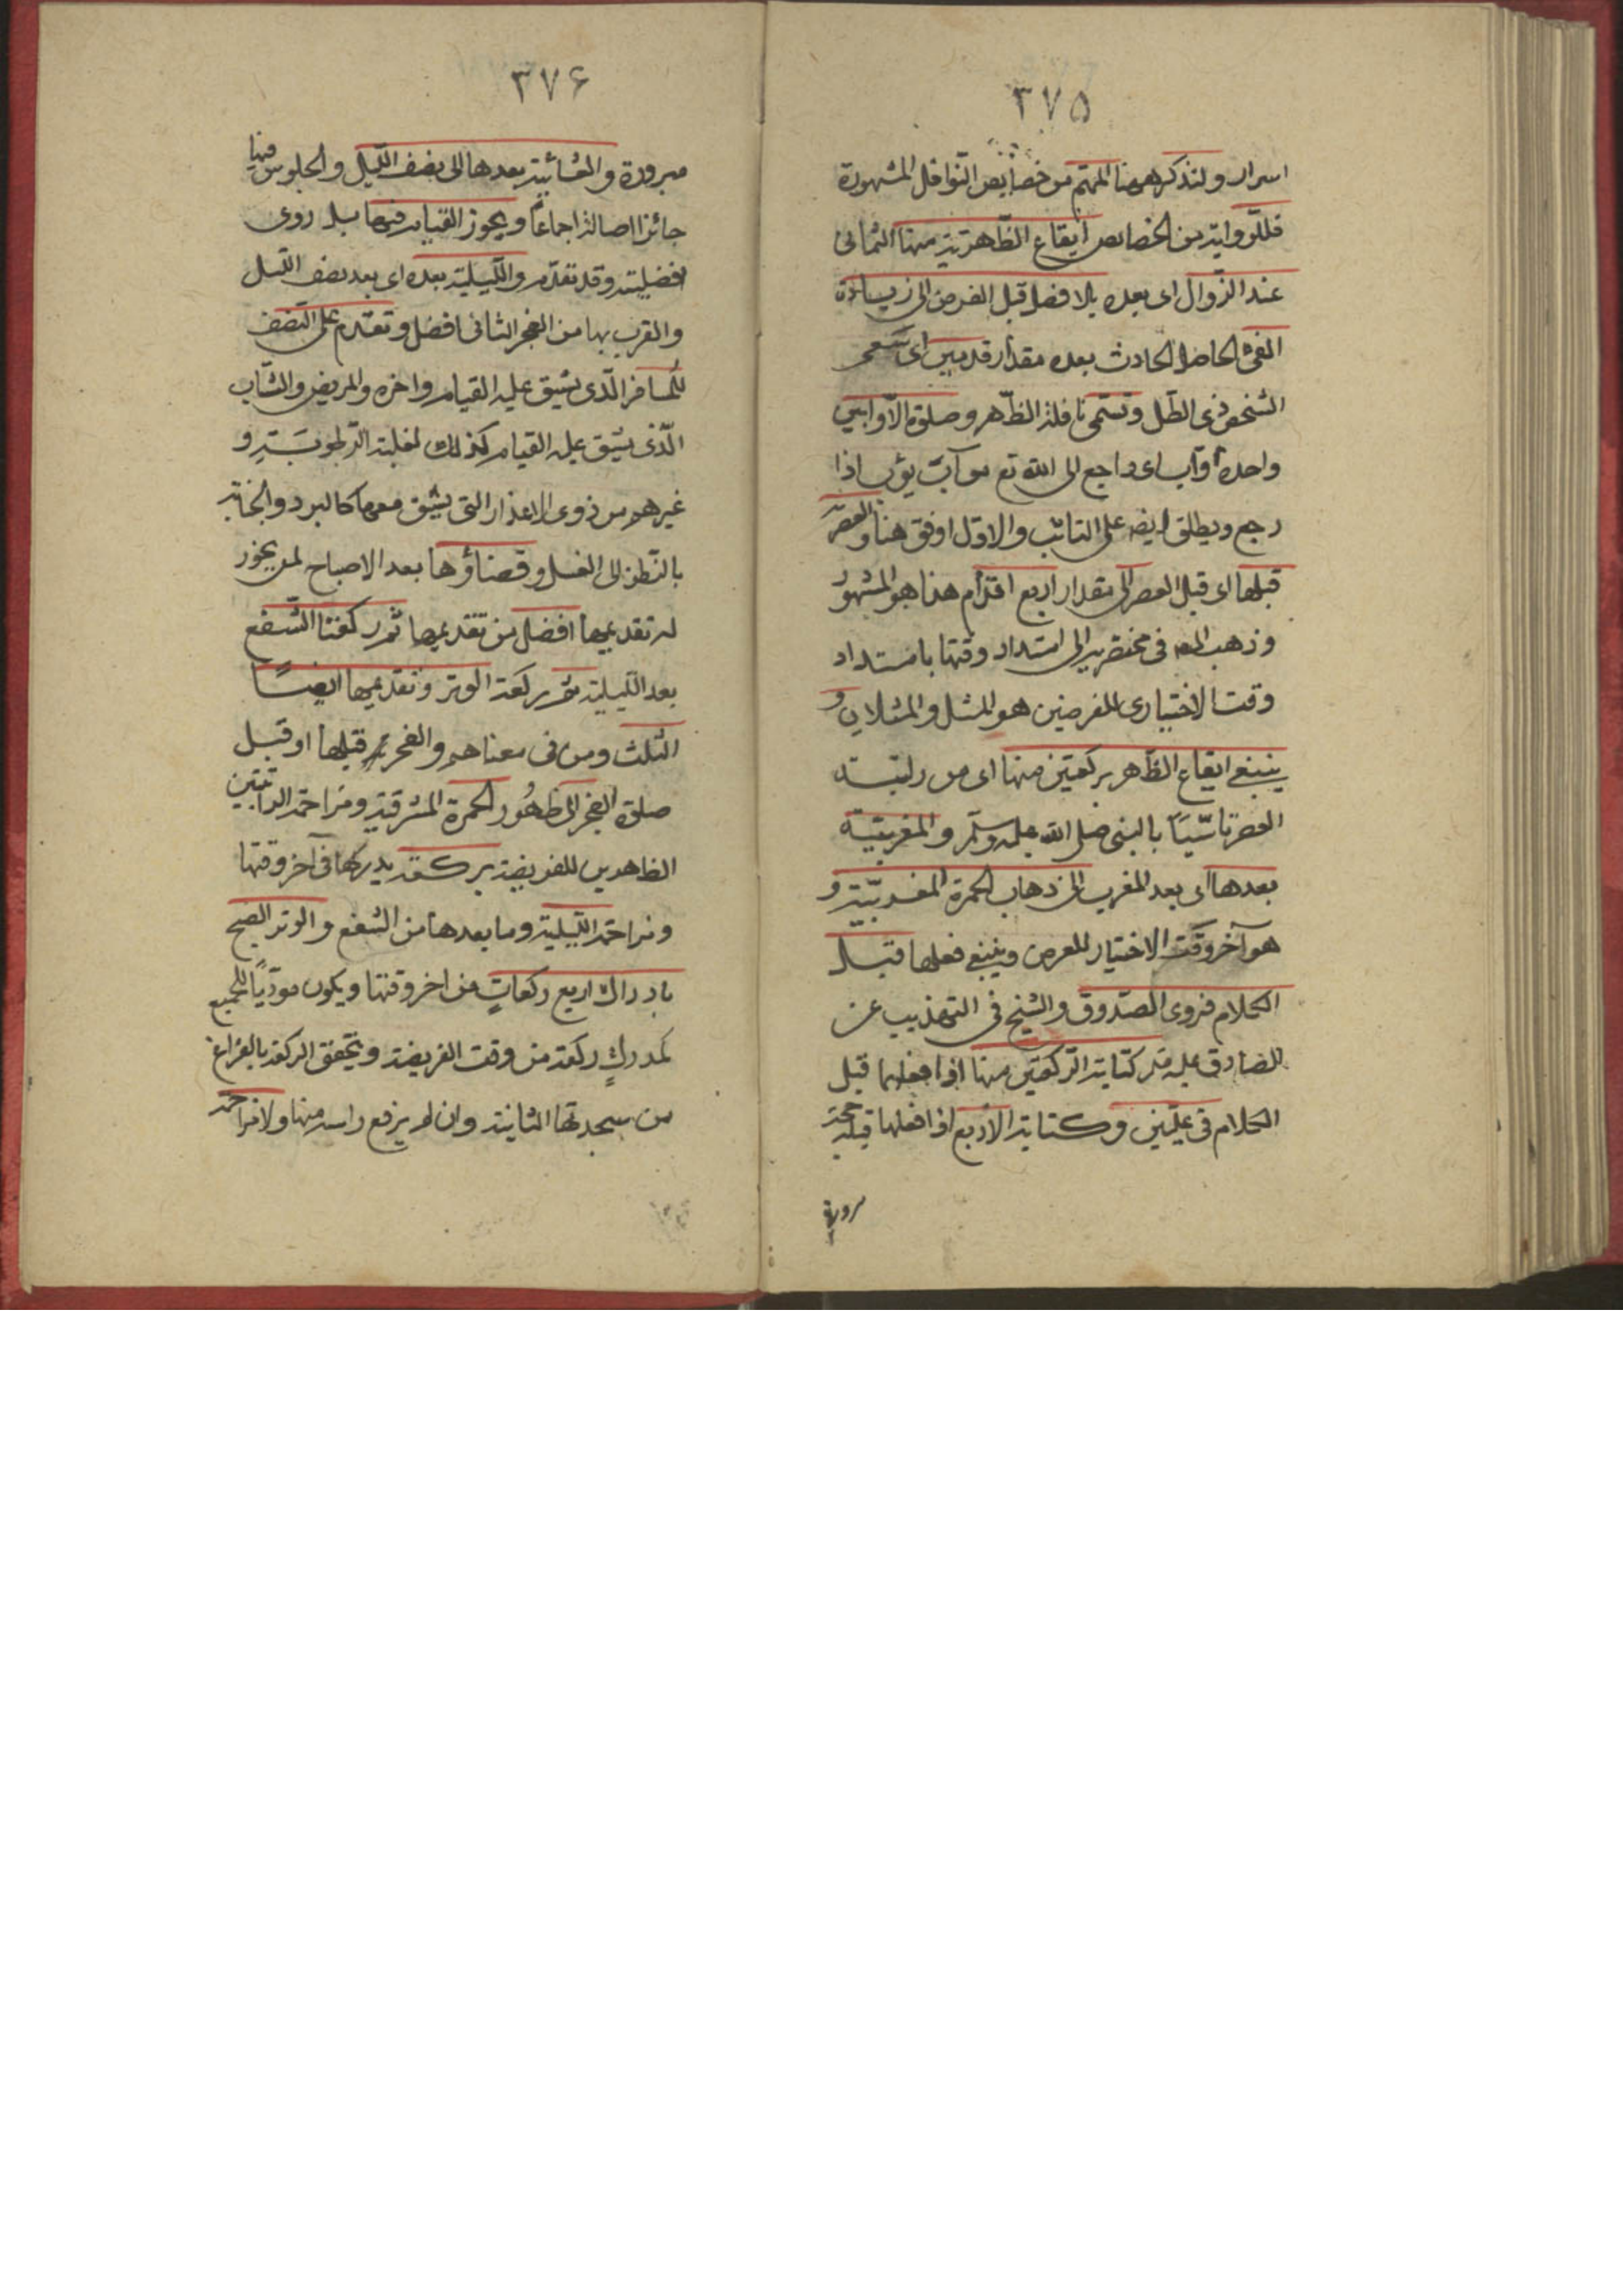 ٣٧٥
اسرار ولنذكر ههنا المهم من خصايص النّوافل المشهورة
فللرّواتب من الخصايص ايقاع الظّهرية منها الثمانى
عند الزّوال اى بعده بلا فصل قبل الفرض الى زيادة
الفئ الحاصل الحادث بعده مقدار قدمين اى سُبعى
الشخص ذى الظّل وتسمّى نافلة الظّهر وصلوة الاوّابين
واحده اوّاب اى راجع الى الله تع من آب يؤب اذا
رجع ويطلق ايضه على التائب والاول اوفق هنا والعصريّة
قبلها اى قبل العصر الى مقدار اربع اقدام هذا هو المشهور
وذهب المصه فى مختصريه الى امتداد وقتها بامتداد
وقت الاختيارى للفرضين هو المثل والمثلان و
ينبغى ايقاع الظّهر بركعتين منها اى من راتبته
العصر تاسّيًا بالنبى صلى الله عليه وسلّم والمغربيّة
بعدها اى بعد المغرب الى ذهاب الحمرة المغربيّة و
هو آخر وقت الاختيار للفرض وينبغى فعلها قبل
الكلام فروى الصّدوق والشيخ فى التهذيب عن
الصادق عليه كتابة الرّكعتين منها اذا فعلهما قبل
الكلام فى علّيّين وكتابة الاربع اذا فعلها قبله حجة
مرورة
٣٧۶
مبرورة والعشائية بعدها الى نصف الليل والجلوس فيها
جائز اصالة اجماعًا ويجوز القيام فيها بل روى
افضليته وقد تقدّم والليلية بعده اى بعد نصف الليل
والقرب بها من الفجر الثانى افضل وتقدّم على النّصف
للمسافر الّذى يشق عليه القيام واخره والمريض والشّاب
الّذى يشق عليه القيام كذلك لغلبة الرطوبة و
غيرهم من ذوى الاعذار التى يشق معها كالبرد والجنابة
بالنّظر الى الغسل وقضاؤها بعد الاصباح لمن يجوز
له تقديمها افضل من تقديمها ثم ركعتا الشّفع
بعد الليلية ثم ركعة الوتر وتقديمها ايضًا
الثلث ومن فى معناهم والفجر قبلها او قبل
صلوة الفجر الى ظهُور الحمرة المشرقية ومزاحمة الراتبتين
الظاهرين للفريضة بركعة يدركها فى آخر وقتها
ومزاحمة الليلية وما بعدها من الشفع والوتر الصبح
بادراك اربع ركعاتٍ من اخر وقتها ويكون مودّيًا للجميع
كمدركٍ ركعة من وقت الفريضة ويتحقق الركعة بالفراغ
من سجدتها الثانية وان لم يرفع راسه منها ولا مزاحمة